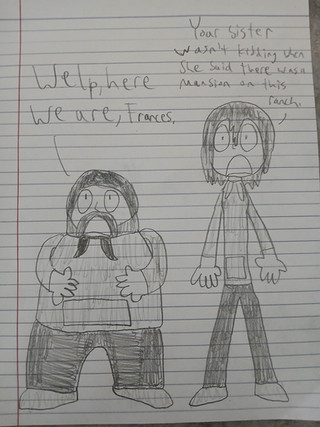 Welp, here
we are, Frances.
Your sister
wasn't kidding when
she said there was a
mansion on this
ranch.